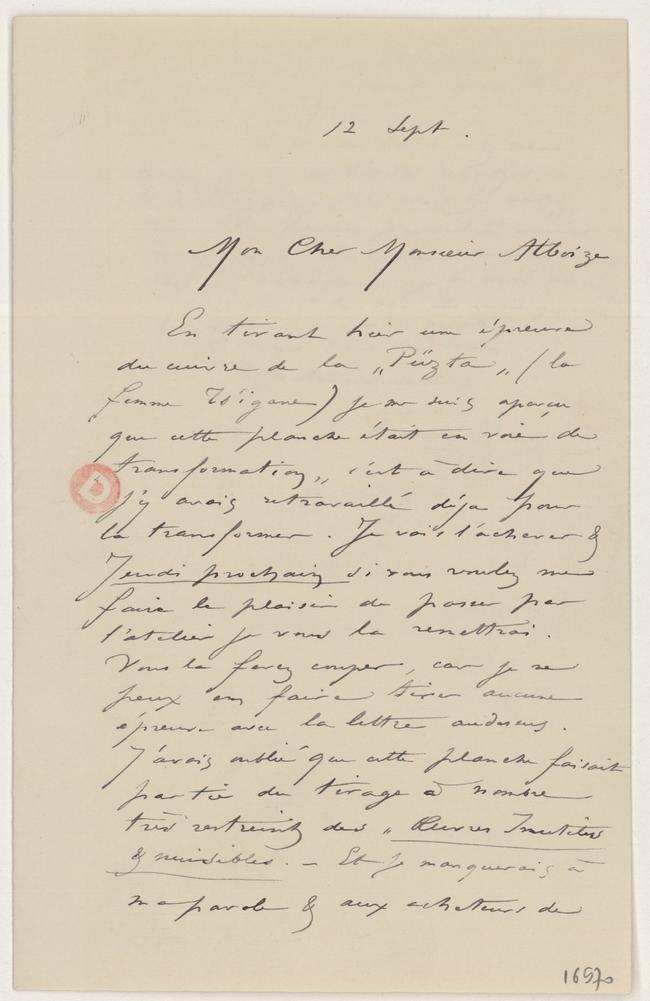 12 Sept.
Mon Cher Monsieur Alboize
En tirant hier une épreuve
du cuivre de la „Püzta„ (la
femme Tsigane) je me suis aperçu
que cette planche était en voie de
transformation„ c'est à dire que
j'y avais retravaillé déja pour
la transformer. Je vais l'achever &
Jeudi prochain si vous voulez me
faire le plaisir de passer par
l'atelier je vous la remettrai.
Vous la ferez couper, car je ne
peux en faire tirer aucune
épreuve avec la lettre audessus.
J'avais oublié que cette planche faisait
partie du tirage à nombre
très restreint des „ Œuvres Inutiles
& nuisibles. – Et je manquerais à
ma parole & aux acheteurs de
16570